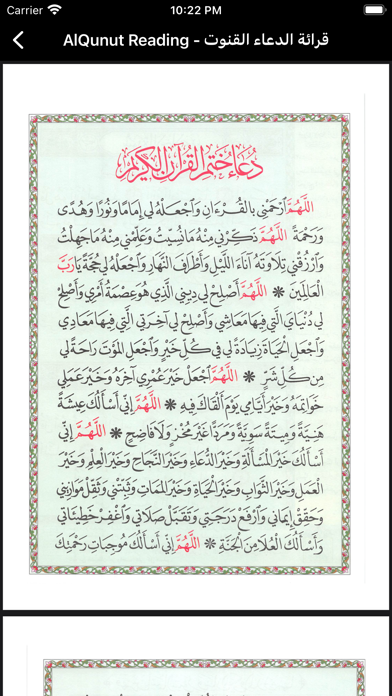 Carrier 10:22 PM
AlQunut Reading - قرائة الدعاء القنوت
دُعَاءُ خَتْمِ القُرْآنِ الكَرِيْمِ
اللَّهُمَّ ٱرْحَمْنِي بِالقُرْءَانِ وَٱجْعَلْهُ لِي إِمَامًا وَنُورًا وَهُدًى
وَرَحْمَةً اللَّهُمَّ ذَكِّرْنِي مِنْهُ مَانَسِيتُ وَعَلِّمْنِي مِنْهُ مَاجَهِلْتُ
وَٱرْزُقْنِي تِلَاوَتَهُ آنَاءَ اللَّيْلِ وَأَطْرَافَ النَّهَارِ وَٱجْعَلْهُ لِي حُجَّةً يَارَبَّ
العَالَمِينَ * اللَّهُمَّ أَصْلِحْ لِي دِينِي الَّذِي هُوَعِصْمَةُ أَمْرِي وَأَصْلِحْ
لِي دُنْيَايَ الَّتِي فِيهَا مَعَاشِي وَأَصْلِحْ لِي آخِرَتِي الَّتِي فِيهَا مَعَادِي
وَٱجْعَلِ الحَيَاةَ زِيَادَةً لِي فِي كُلِّ خَيْرٍ وَٱجْعَلِ المَوْتَ رَاحَةً لِي
مِن كُلِّ شَرٍّ * اللَّهُمَّ ٱجْعَلْ خَيْرَ عُمْرِي آخِرَهُ وَخَيْرَ عَمَلِي
خَوَاتِمَهُ وَخَيْرَ أَيَّامِي يَوْمَ أَلْقَاكَ فِيهِ * اللَّهُمَّ إِنِّي أَسْأَلُكَ عِيشَةً
هَنِيَّةً وَمِيتَةً سَوِيَّةً وَمَرَدًّا غَيْرَ مُخْزٍ وَلَا فَاضِحٍ * اللَّهُمَّ إِنِّي
أَسْأَلُكَ خَيْرَ المَسْأَلَةِ وَخَيْرَ الدُّعَاءِ وَخَيْرَ النَّجَاحِ وَخَيْرَ العِلْمِ وَخَيْرَ
العَمَلِ وَخَيْرَ الثَّوَابِ وَخَيْرَ الحَيَاةِ وَخَيْرَ المَمَاتِ وَثَبِّتْنِي وَثَقِّلْ مَوَازِينِي
وَحَقِّقْ إِيمَانِي وَٱرْفَعْ دَرَجَتِي وَتَقَبَّلْ صَلَاتِي وَٱغْفِرْ خَطِيئَاتِي
وَأَسْأَلُكَ العُلَا مِنَ الجَنَّةِ * اللَّهُمَّ إِنِّي أَسْأَلُكَ مُوجِبَاتِ رَحْمَتِكَ